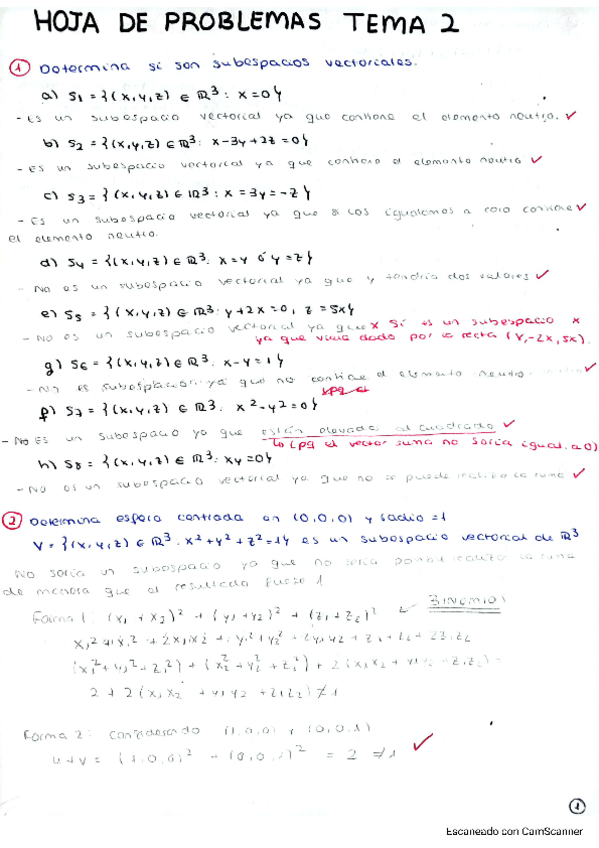 HOJA DE PROBLEMAS TEMA 2
① Determina si son subespacios vectoriales.
a) S₁ = {(x,y,z) ∈ ℝ³: x=0}
- Es un subespacio vectorial ya que contiene el elemento neutro. ✓
b) S₂ = {(x,y,z) ∈ ℝ³: x-3y+2z=0}
- Es un subespacio vectorial ya que contiene el elemento neutro ✓
c) S₃ = {(x,y,z) ∈ ℝ³: x=3y=-z}
- Es un subespacio vectorial ya que si los igualamos a cero contiene ✓
el elemento neutro.
d) S₄ = {(x,y,z) ∈ ℝ³: x=y ó y=z}
- No es un subespacio vectorial ya que y tendría dos valores ✓
e) S₅ = {(x,y,z) ∈ ℝ³: y+2x=0, z=5x}
- No es un subespacio vectorial ya que x Sí es un subespacio x
ya que viene dado por la recta (x,-2x,5x).
g) S₆ = {(x,y,z) ∈ ℝ³: x-y=1}
- No es subespacio ya que no contiene el elemento neutro ✓
f) S₇ = {(x,y,z) ∈ ℝ³: x²-y²=0}
- No es un subespacio ya que están elevados al cuadrado ✓
(pq el vector suma no sería igual a 0)
h) S₈ = {(x,y,z) ∈ ℝ³: xy=0}
- No es un subespacio vectorial ya que no se puede la suma ✓
② Determina esfera centrada en (0,0,0) y radio=1
V = {(x,y,z) ∈ ℝ³: x²+y²+z²=1} es un subespacio vectorial de ℝ³
No sería un subespacio ya que no sería realizar la suma
de manera que el resultado fuese 1
Forma 1: (x₁ + x₂)² + (y₁+y₂)² + (z₁+z₂)² ✓ BINOMIOS
x₁²+x₂²+2x₁x₂+y₁²+y₂²+2y₁y₂+z₁+z₂+2z₁z₂
(x₁²+y₁²+z₁²) + (x₂²+y₂²+z₂²) + 2(x₁x₂+y₁y₂+z₁z₂) =
2+2(x₁x₂+y₁y₂+z₁z₂) ≠ 1
Forma 2: Considerado (1,0,0) y (0,0,1)
u+v = (1,0,0)² - (0,0,1)² = 2 ≠ 1 ✓
①
Escaneado con CamScanner